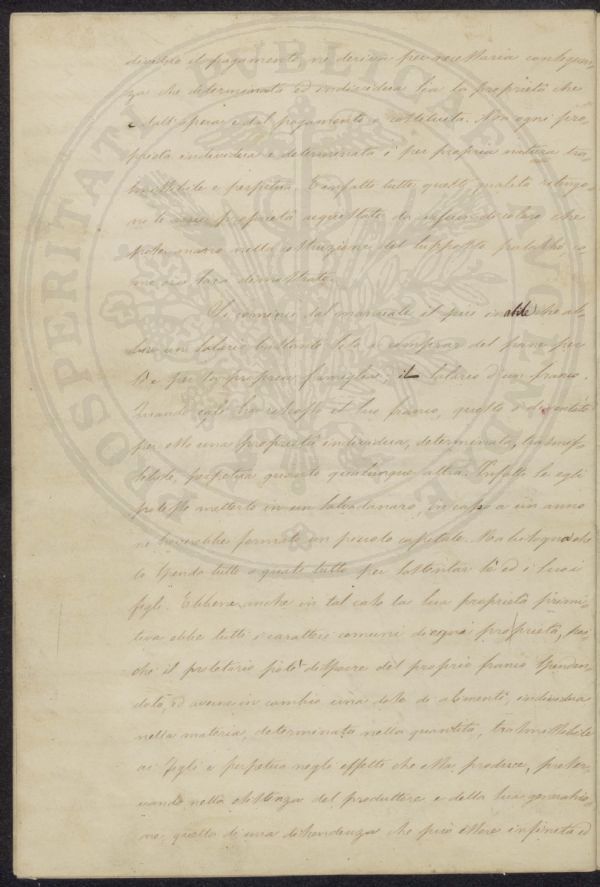 dividere il pagamento, ne deriva per necessaria conseguen-
za che determinata ed individua sia la proprietà che
dall'operare e dal pagamento è costituita. Ma ogni pro-
prietà individua e determinata è per propria natura tra-
smessibile e perpetua. E infatti tutte queste qualità
le proprietà acquistate da coloro che
nella costruzione del supposto palazzo co-
me ora sarà dimostrato.
Si cominci dal manuale il più inabile che ab-
bia un salario bastante solo a comprar del pane per
sè e per la propria famiglia, il salario d'un franco.
Quando egli ha riscosso il suo franco, questo è diventato
per esso una proprietà individua, determinata, trasmes-
sibile, perpetua quanto qualunque altra. Infatti se egli
potesse metterlo in un salvadanaro, in capo a un anno
ne avrebbe formato un piccolo capitale. Ma bisogna che
lo spenda tutto o quasi tutto per sostentar sè ed i suoi
figli. Ebbene, anche in tal caso la sua proprietà primi-
tiva ebbe tutti i caratteri comuni di ogni proprietà, poi-
chè il proletario potè disporre del proprio franco spenden-
dolo, ed averne in cambio una dose di alimenti, individua
nella materia, determinata nella quantità, trasmessibile
ai figli e perpetua negli effetti che essa produce, preser-
vando nella esistenza del produttore e della sua generazio-
ne, quella di una discendenza che può essere infinita ed
PROSPERITATI PUBLICAE AUGENDAE